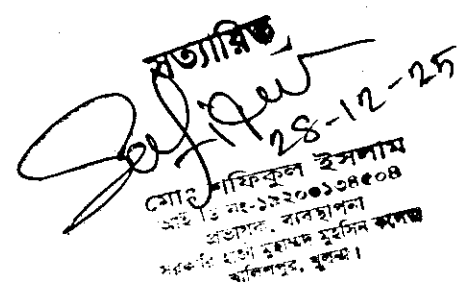 সত্যায়িত
Safiqul
28-12-25
মোঃ শফিকুল ইসলাম
আই ডি নং-১৯২০০১১৩৪৫০৪
প্রভাষক, ব্যবস্থাপনা
সরকারি হাজী মুহাম্মদ মুহসিন কলেজ
খালিশপুর, খুলনা।